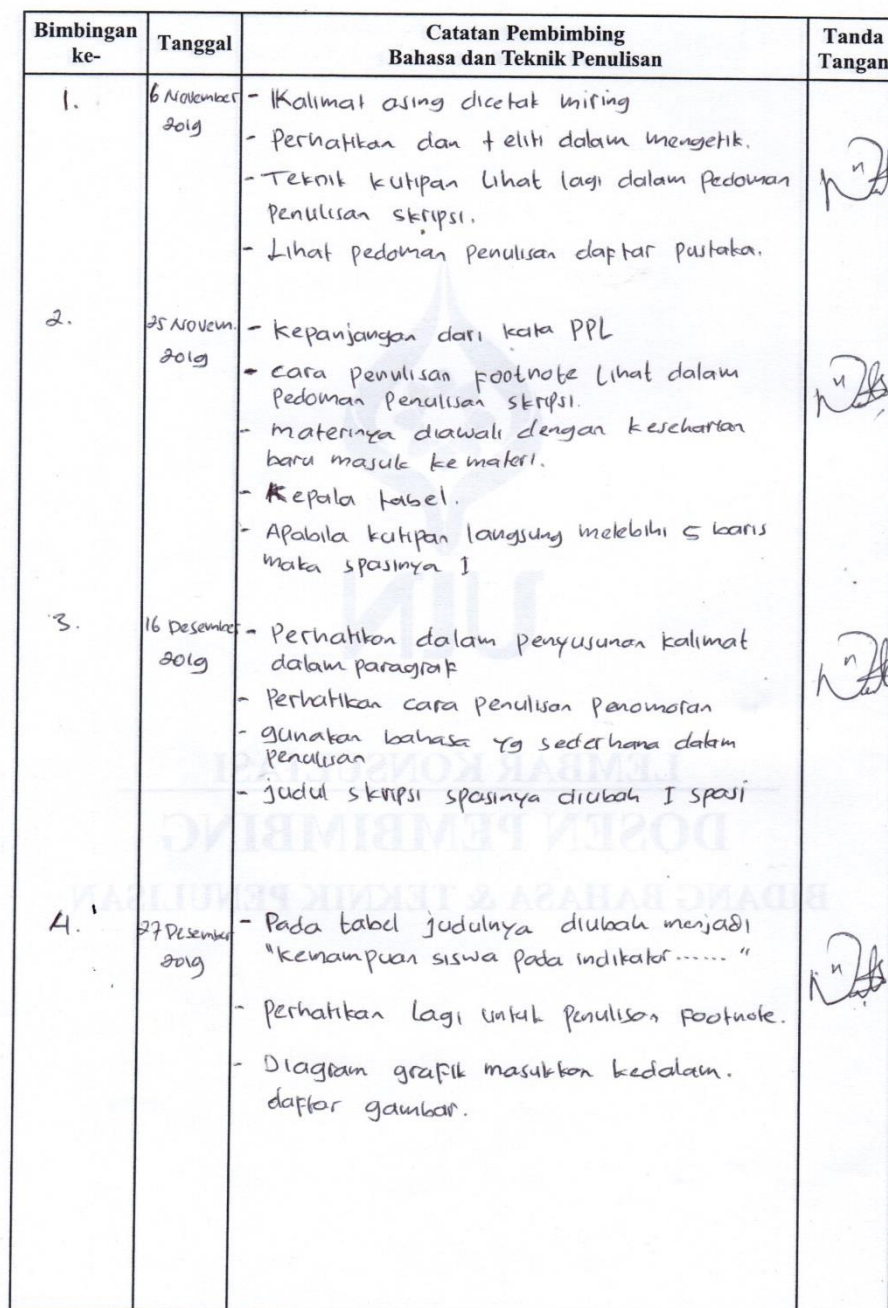 Bimbingan ke-
Tanggal
Catatan Pembimbing
Bahasa dan Teknik Penulisan
Tanda Tangan
1.
6 November
2019
- Kalimat asing dicetak miring
- Perhatikan dan teliti dalam mengetik.
- Teknik kutipan Lihat lagi dalam Pedoman
Penulisan skripsi.
- Lihat pedoman penulisan daftar pustaka.
2.
25 Novem.
2019
- Kepanjangan dari kata PPL
- cara penulisan Footnote Lihat dalam
Pedoman Penulisan skripsi.
- materinya diawali dengan keseharian
baru masuk ke materi.
- Kepala tabel.
- Apabila kutipan langsung melebihi 5 baris
maka spasinya 1
3.
16 Desember
2019
- Perhatikan dalam penyusunan kalimat
dalam paragraf
- Perhatikan cara penulisan Penomoran
- gunakan bahasa yg sederhana dalam
penulisan
- Judul skripsi spasinya diubah 1 spasi
4.
27 Desember
2019
- Pada tabel judulnya diubah menjadi
"kemampuan siswa pada indikator ...... "
- Perhatikan Lagi untuk Penulisan Footnote.
- Diagram grafik masukkan kedalam.
daftar gambar.
UIN
LEMBAR KONSULTASI
DOSEN PEMBIMBING
BIDANG BAHASA & TEKNIK PENULISAN